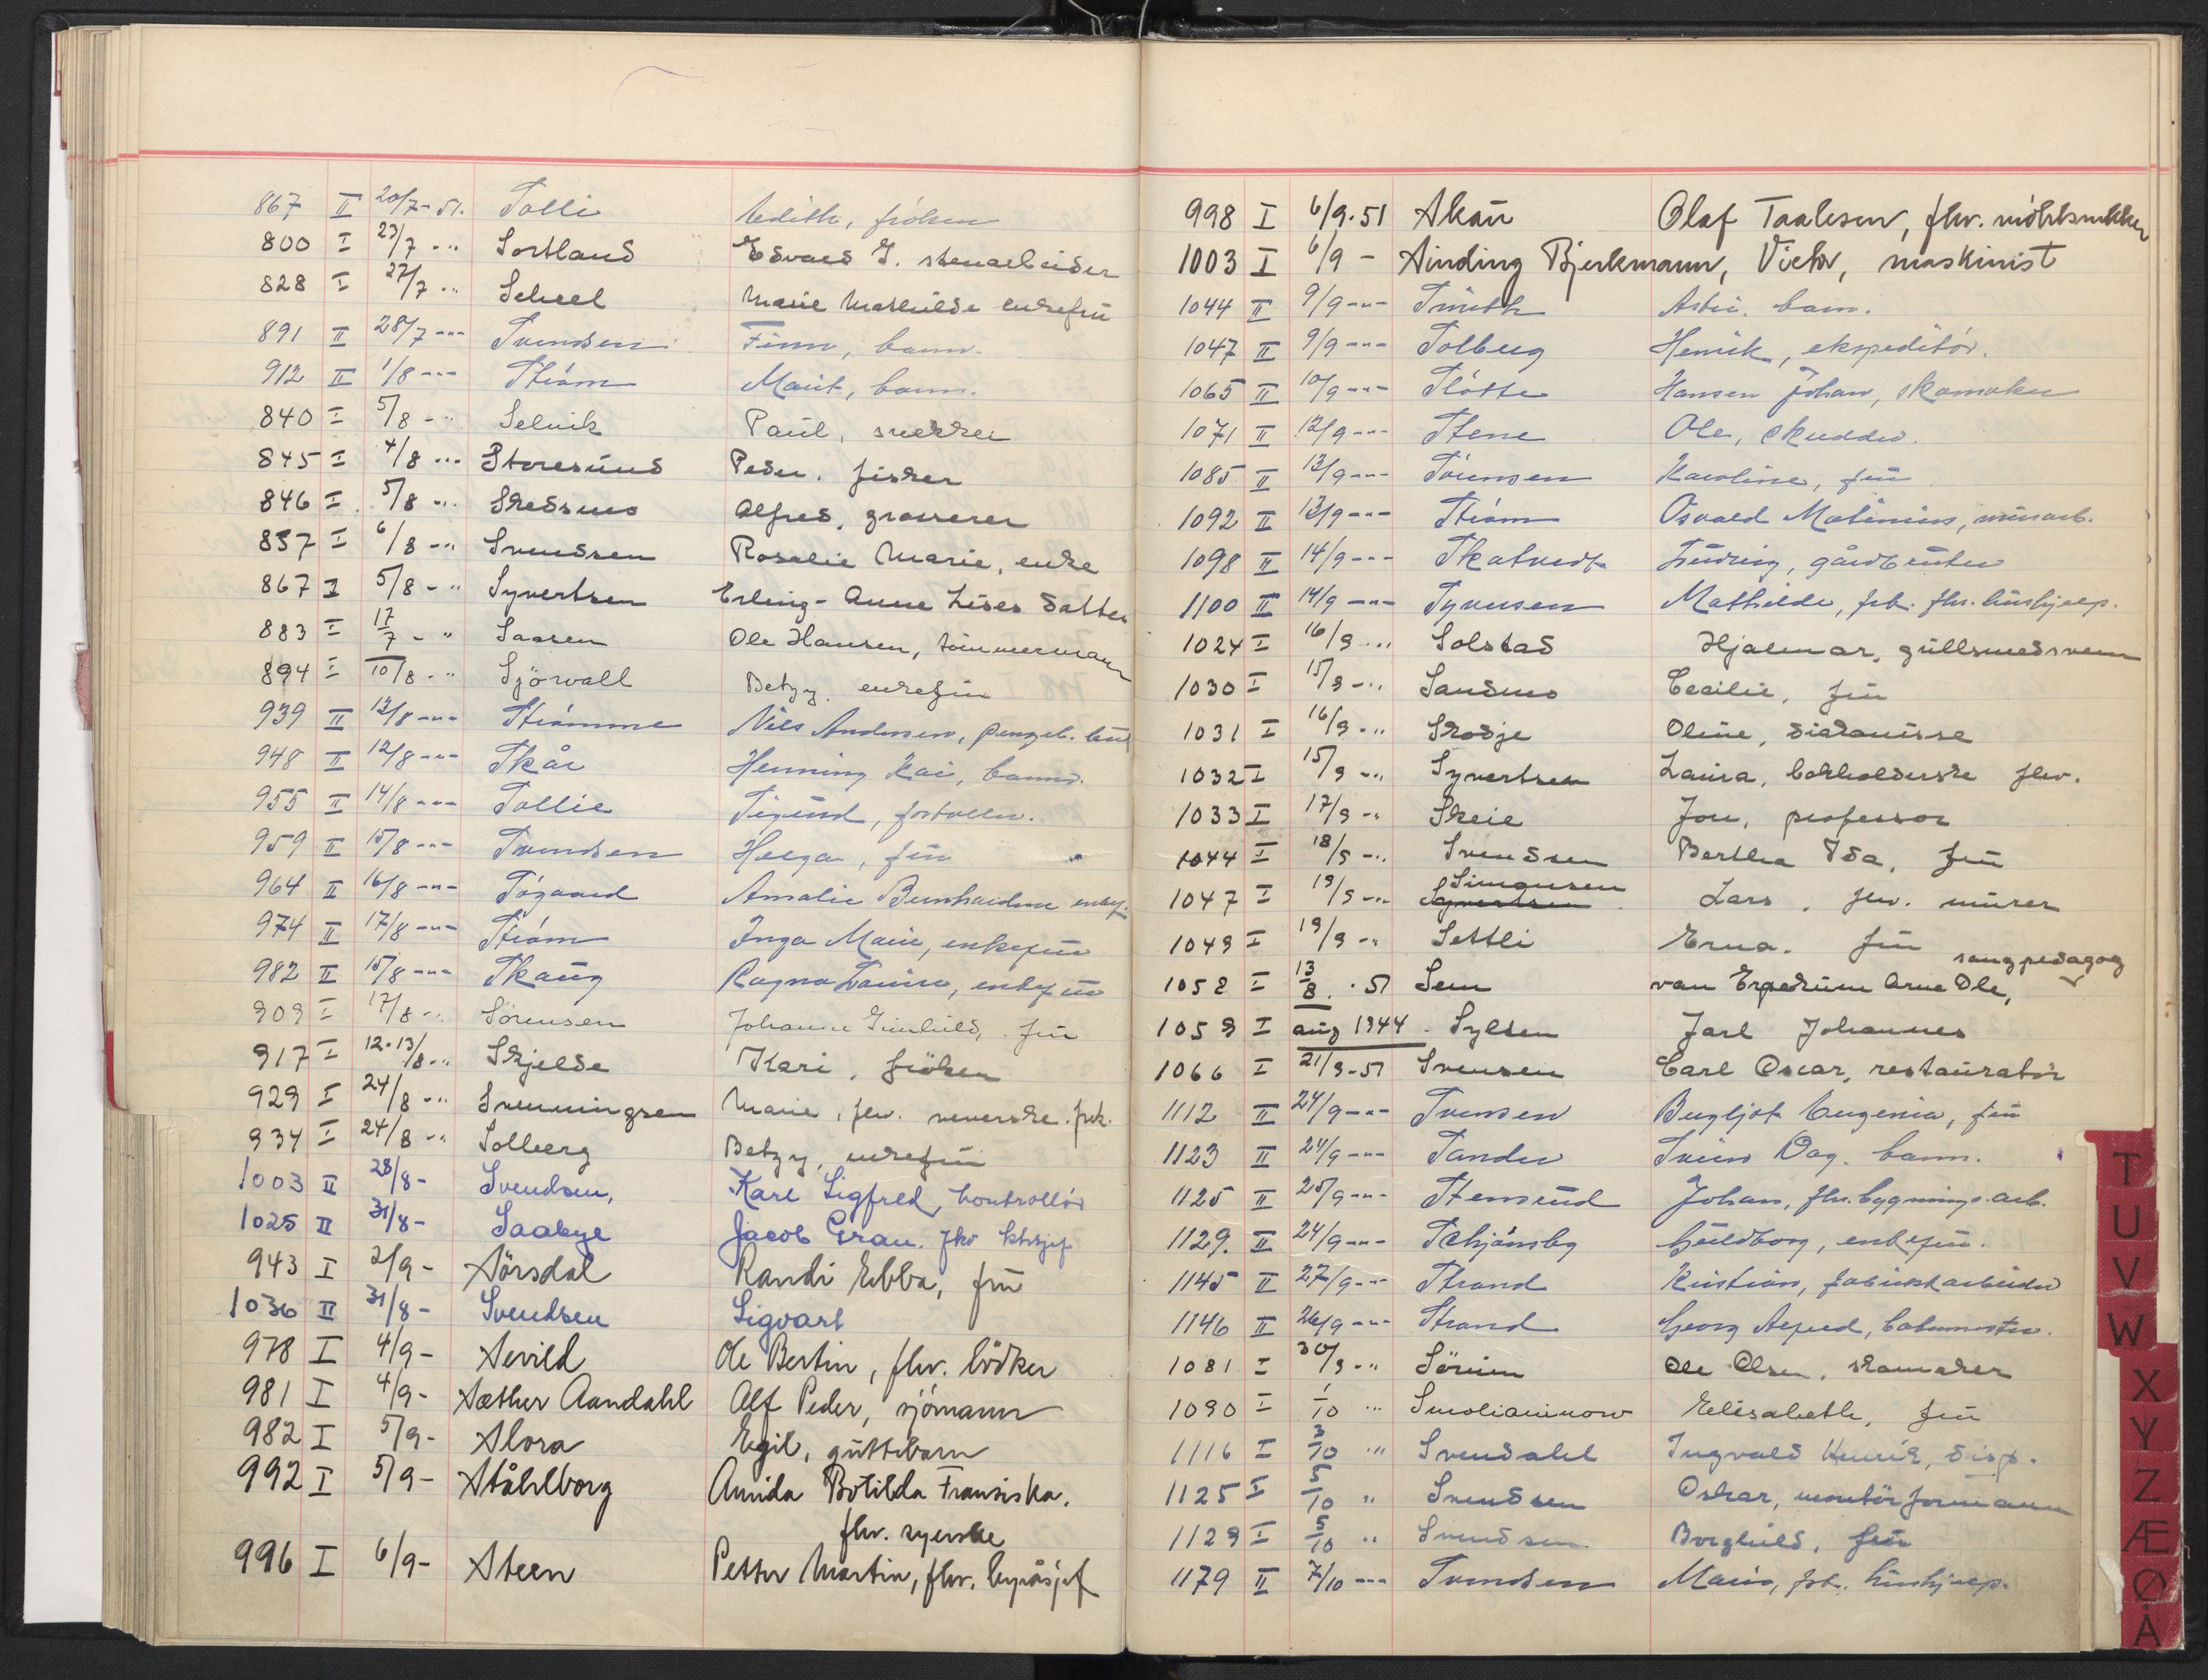 867 II 20/7-51. Solli Edith, frøken
800 I 23/7 - " Sortland Edvard J. stenarbeider
828 I 27/7 - " Scheel Marie Mathilde enkefrü
891 II 28/7 -"- Svendsen Finn, barn.
912 II 1/8 -"- Strøm Marit, barn.
840 I 5/8 - " Selvik Paul, snekker
845 I 4/8 - " Storesund Peder, fisker
846 I 5/8 - " Skedsmo Alfred, grosserer
857 I 6/8 - " Svendsen Rosalie Marie, enke
867 I 5/8 - " Syvertsen Erling - Anne Lises datter
883 I 17/7 - " Saasen Ole Hansen, tømmermann
894 I 10/8 - " Sjörvall Betzy, enkefrü
939 II 13/8 -"- Strømme Nils Andersen,
948 II 12/8 -"- Skår Henning Kai, barn.
955 II 14/8 -"- Sollie Sigurd, fortoller.
959 II 15/8 -"- Svendsen Helga, frü
964 II 16/8 -"- Søgaard Amalie Bernhardine enkef.
974 II 17/8 -"- Strøm Inga Marie, enkefrü
982 II 15/8 -"- Skaug Ragna Louise, enkefrü
909 I 17/8 - " Sørensen Johanne Gunhild, frü
917 I 12-13/8 - " Skjelde Kari, frøken
929 I 24/8 - " Svenningsen Marie, fhv. veverske. frk.
934 I 24/8 - " Solberg Betzy, enkefrü
1003 II 28/8- Svendsen, Karl Sigfred, kontrollör
1025 II 31/8- Saabye Jacob Grau. fhv ktrsjef
943 I 2/9- Sörsdal Randi Ebba, frü
1036 II 31/8- Svendsen Sigvart
978 I 4/9- Sevild Ole Bertin, fhv. bödker
981 I 4/9- Sæther Aandahl Alf Peder, sjömann
982 I 5/9- Slora Egil, guttebarn
992 I 5/9- Ståhlborg Annida Botilda Fransiska.
fhv. syerske
996 I 6/9- Steen Petter Martin, fhv. byråsjef
998 I 6/9-51 Skau Olaf Taalesen, fhv. möbelsnekker
1003 I 6/9 - Sinding Bjerkmann, Victor, maskinist
1044 II 9/9 -"- Smith barn.
1047 II 9/9 -"- Solberg Henrik, ekspeditør.
1065 II 10/9 -"- Slåtte Hansen Johan, skomaker
1071 II 12/9 -"- Stene Ole, skredder.
1085 II 13/9 -"- Sørensen Karoline, frü
1092 II 13/9 -"- Strøm Osvald Matinius, murarb.
1098 II 14/9 -"- Skatvedt Sindring, gårdbruker
1100 II 14/9 -"- Syvensen Mathilde, frk. fhv. hushjelp.
1024 I 16/9 - " Solstad Hjalmar, gullsmedsvenn
1030 I 15/9 - " Sandmo Cecilie, frü
1031 I 16/9 - " Skodje Oline, diakonisse
1032 I 15/9 - " Syvertsen Laura, bokholderske fhv.
1033 I 17/9 - " Skeie Jon, professor
1044 I 18/9 - " Svendsen Bertha Ida, frü
1047 I 19/9 - " Simonsen Syvertsen Lars, fhv. murer
1049 I 19/9 - " Settli Erna. frü
1058 I 13/8. - 51 Sem van Erpekum Arne Ole, sangpedagog
1059 I aug 1944. Sylten Jarl Johannes
1066 I 21/9-51 Svensen Carl Oscar, restauratør
1112 II 24/9 -"- Svensen Bergljot Eugenia, frü
1123 II 24/9 -"- Sander Svein Dag. barn.
1125 II 25/9 -"- Stensrud Johan, fhv. bygnings.arb.
1129. II 24/9 -"- Schjånsby Guldborg, enkefrü.
1145 II 27/9 -"- Strand Kristian, fabrikkarbeider
1146 II 26/9 -"- Strand Georg Alfred,
1081 I 30/9 - " Sörum Ole Olsen, skomaker
1090 I 1/10 " Smolianinow Elisabeth, frü
1116 I 3/10 " Svendahl Ingvald Henrik, disp.
1125 I 5/10 " Svendsen Oskar, montörformann
1129 I 5/10 " Svendsen Borghild, frü
1179 II 7/10 -"- Svendsen Marie, frk. hushjelp.
T
U
V
W
X
Y
Z
Æ
Ø
Å